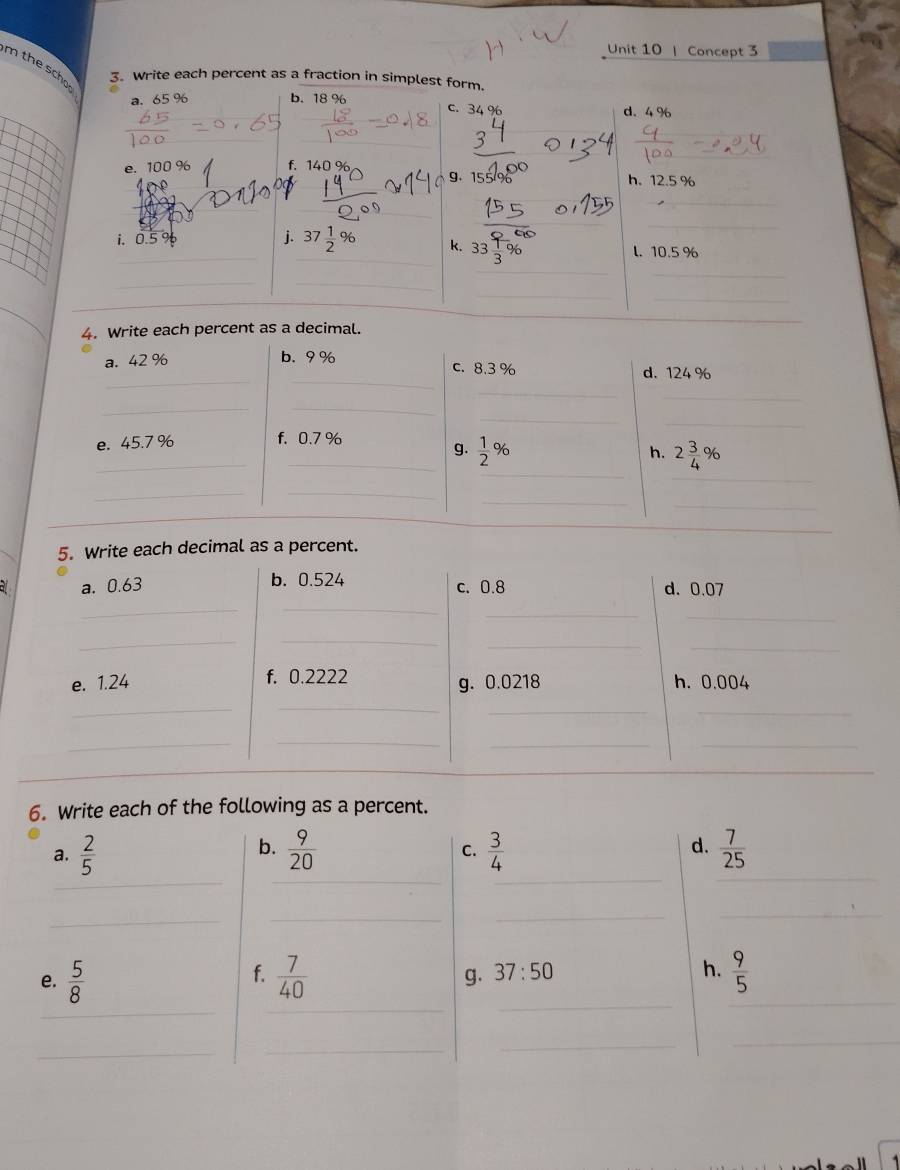 om the school
H.W
Unit 10 | Concept 3
3. Write each percent as a fraction in simplest form.
a. 65 % b. 18 % c. 34 % d. 4 %
65/100 = 0.65 18/100 = 0.18 34/100 0,34 4/100 = 0.04
e. 100 % f. 140 % g. 155 % h. 12.5 %
100 1 140/200 155/200 0,155
i. 0.5 % j. 37 1/2 % k. 33 1/3 % l. 10.5 %
4. Write each percent as a decimal.
a. 42 % b. 9 % c. 8.3 % d. 124 %
e. 45.7 % f. 0.7 % g. 1/2 % h. 2 3/4 %
5. Write each decimal as a percent.
a. 0.63 b. 0.524 c. 0.8 d. 0.07
e. 1.24 f. 0.2222 g. 0.0218 h. 0.004
6. Write each of the following as a percent.
a. 2/5 b. 9/20 c. 3/4 d. 7/25
e. 5/8 f. 7/40 g. 37 : 50 h. 9/5